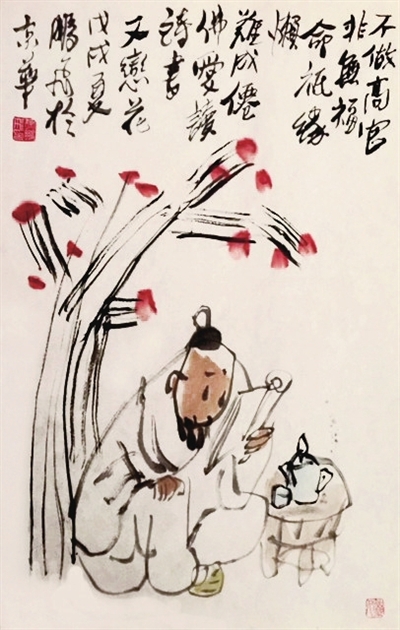 不做高官
非無福
命祇緣
懶
難成僊
佛愛讀
詩書
又戀花
戊戌夏
鵬飛於
京華